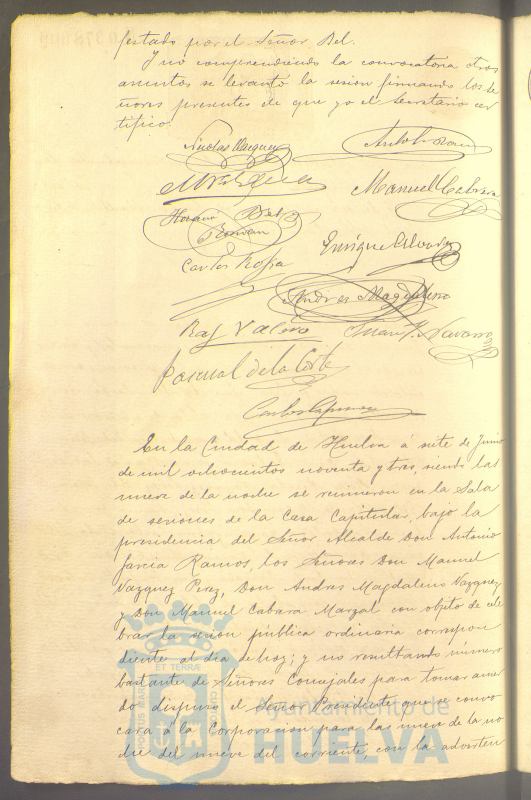 festado por el Señor Bel.
Y no comprendiendo la convocatoria otros
asuntos se levantó la sesion firmando los Se
ñores presentes de que yo el Secretario cer
tifico.
Nicolas Vazquez
Manuel Cabrera
Horacio Bel
Roman
Enrique Alvarez
Carlos Rofa
Andres Magdaleno
Raf Valero
Juan J. Navarro
Pascual de la Corte
En la Ciudad de Huelva á siete de Junio
de mil ochocientos noventa y tres, siendo las
nueve de la noche se reunieron en la Sala
de sesiones de la Casa Capitular, bajo la
presidencia del Señor Alcalde Don Antonio
Garcia Ramos, los Señores Don Manuel
Vazquez Perez, Don Andres Magdaleno Vazquez
y Don Manuel Cabrera Margal con objeto de cele
brar la sesion pública ordinaria correspon
diente al dia de hoy; y no resultando numero
bastante de Señores Concejales para tomar acuer
do dispuso el Señor Presidente que se convo
cara á la Corporacion para las nueve de la no
che del nueve del corriente, con la adverten
ET TERRÆ
PORTUS MARIS
CUSTODIA
Ayuntamiento de
HUELVA